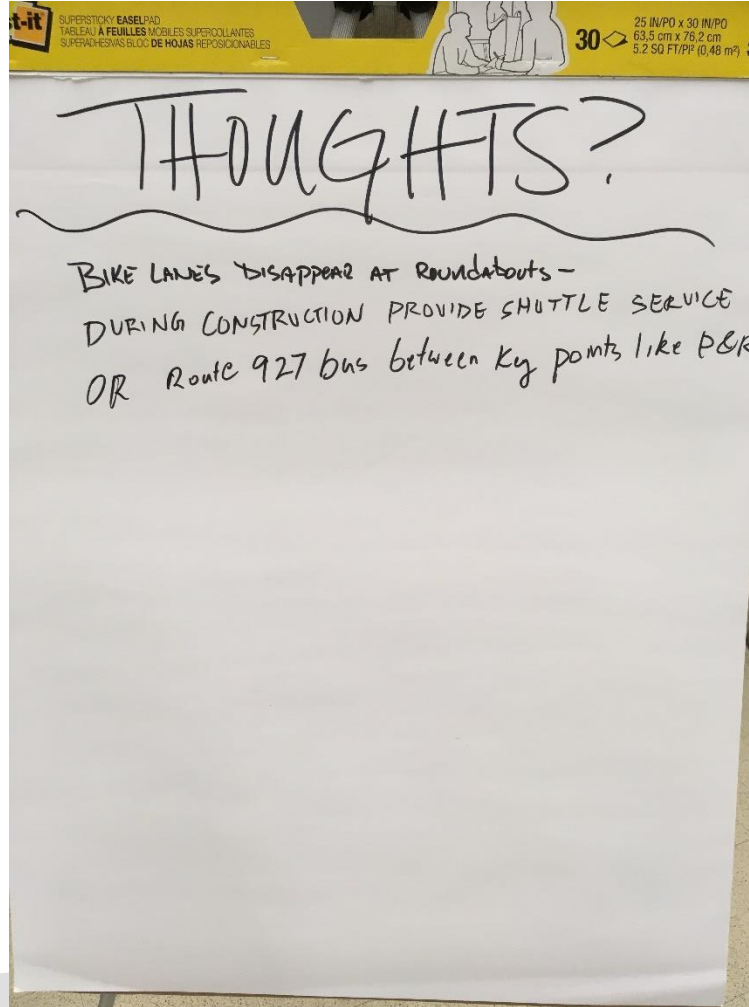 t-it
SUPERSTICKY EASELPAD
TABLEAU À FEUILLES MOBILES SUPERCOLLANTES
SUPERADHESIVAS BLOC DE HOJAS REPOSICIONABLES
30
25 IN/PO x 30 IN/PO
63,5 cm x 76,2 cm
5.2 SQ FT/PI² (0,48 m²)
THOUGHTS?
BIKE LANES DISAPPEAR AT Roundabouts -
DURING CONSTRUCTION PROVIDE SHUTTLE SERVICE
OR Route 927 bus between Key points like P&R